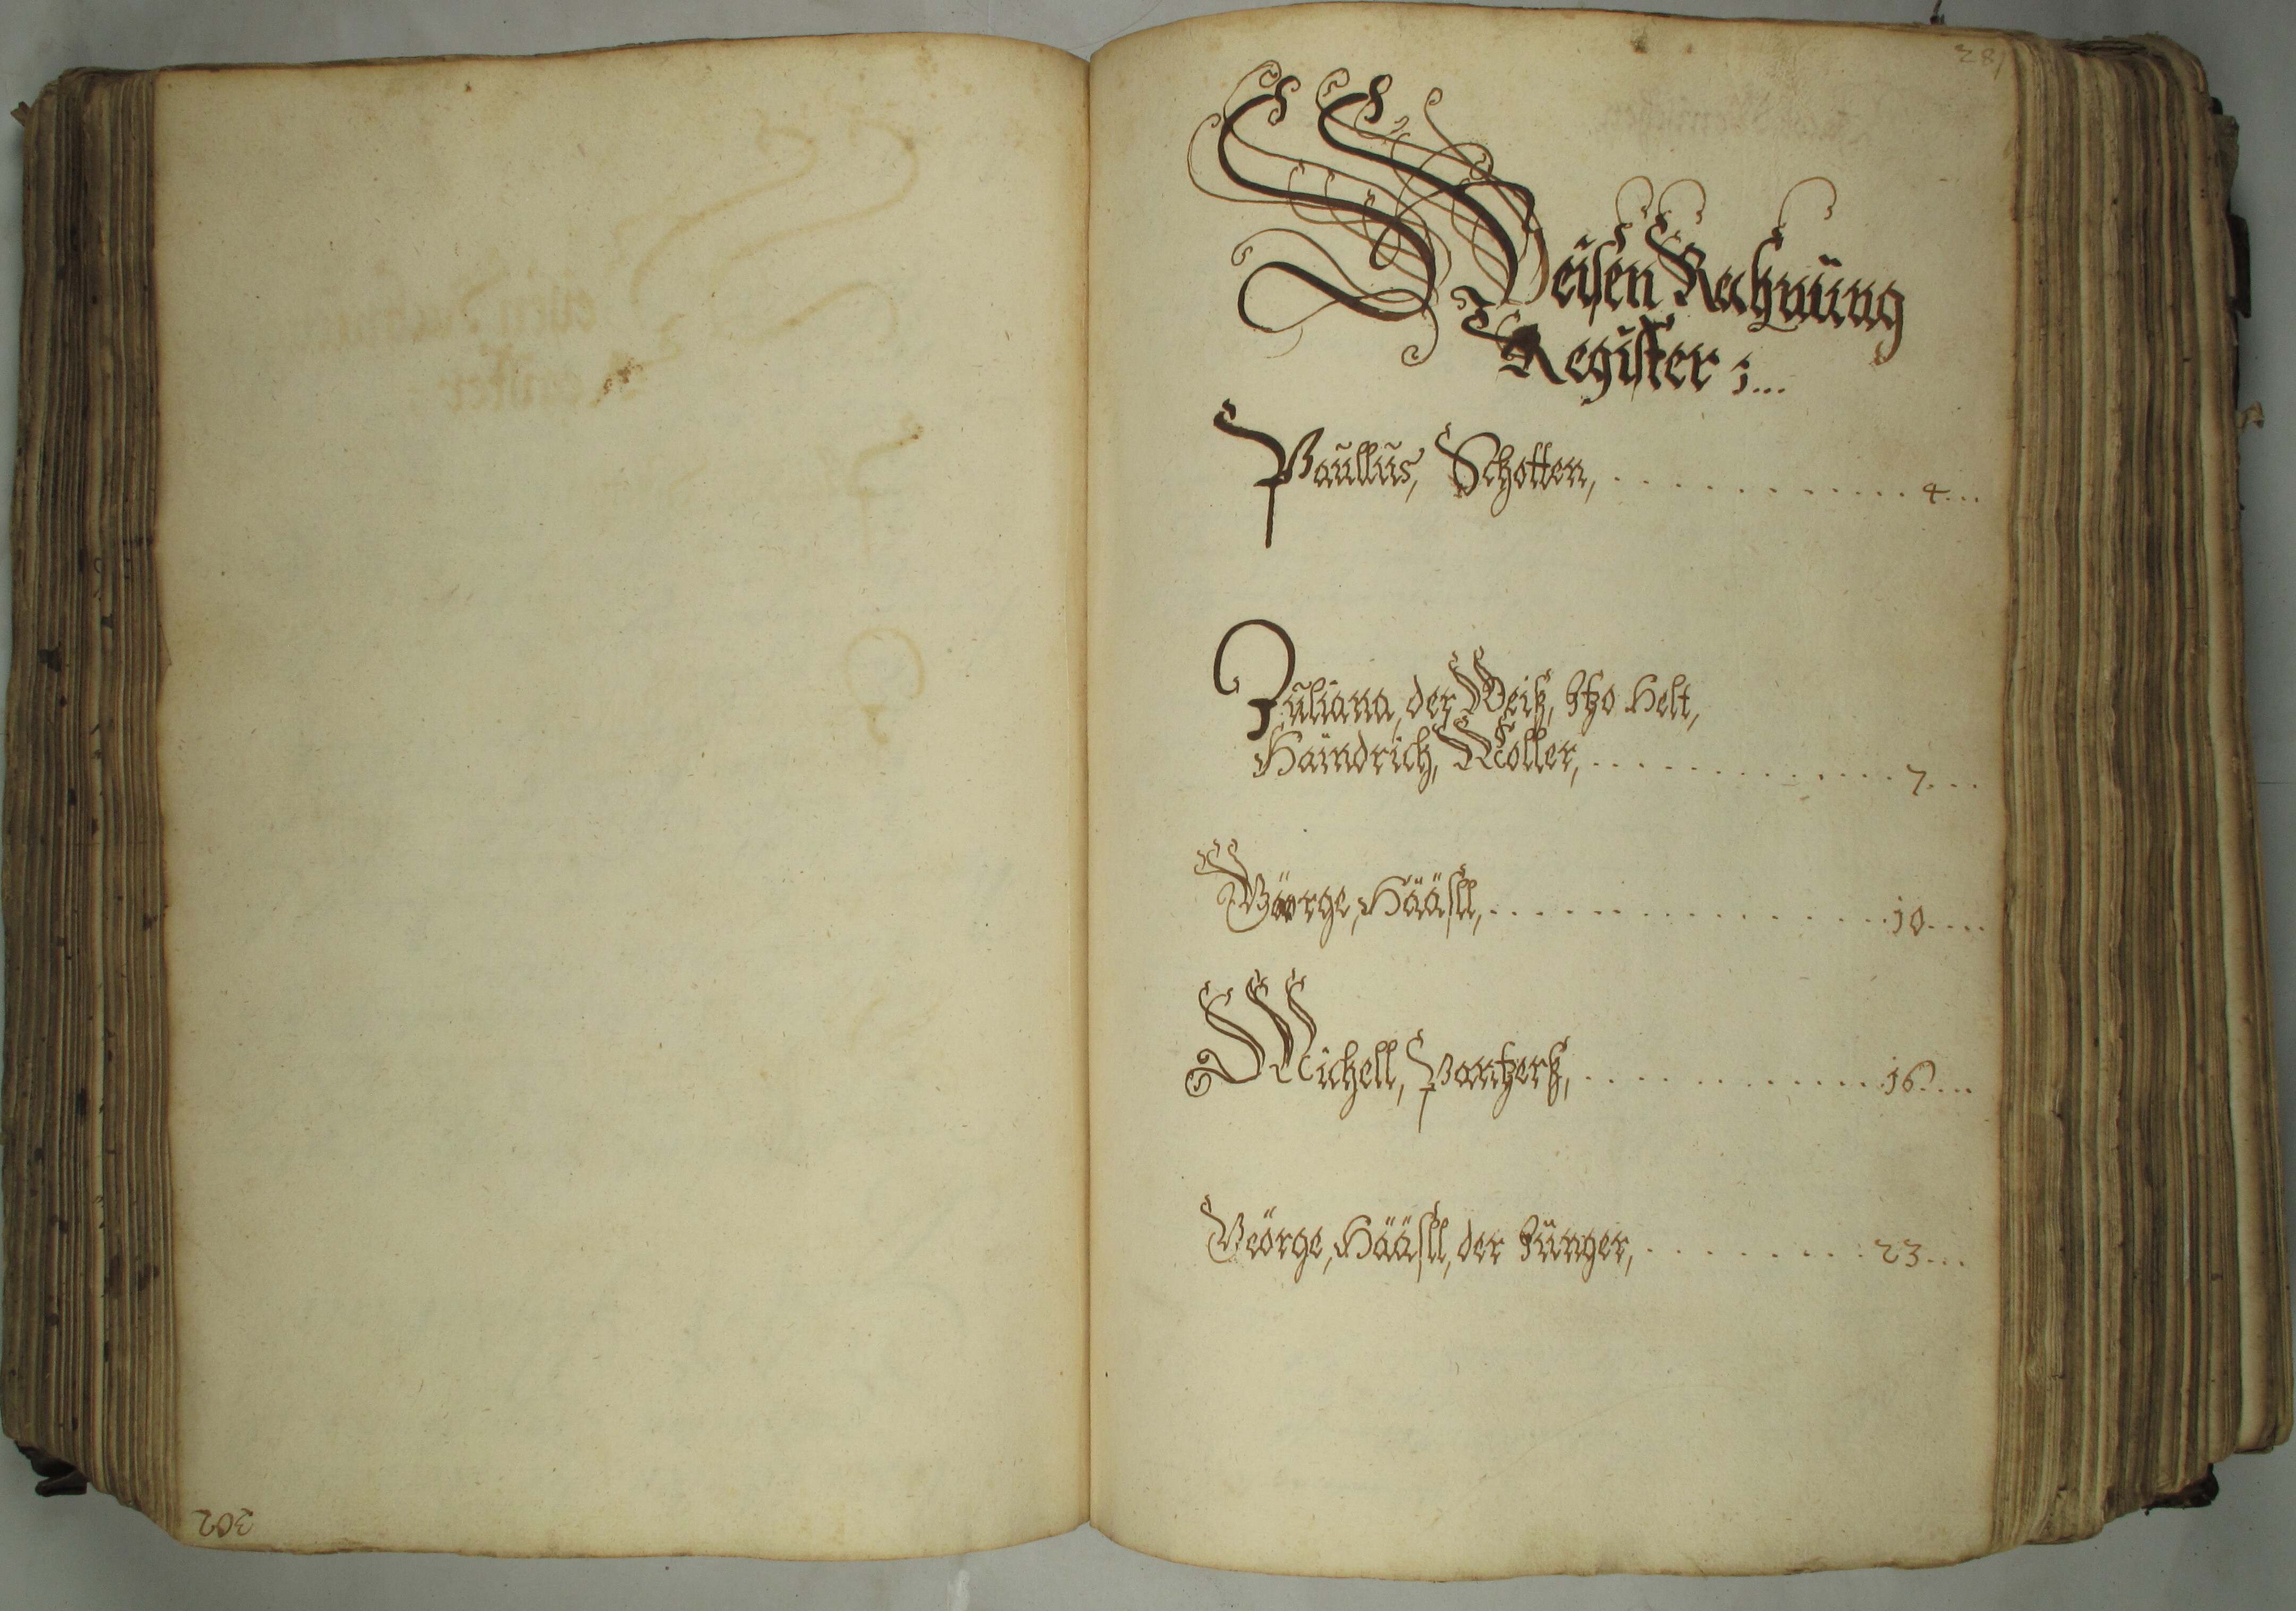 302
281
Weisen Rechnüng
Register ;...
Paullus, Schotten, . . . . . . . . . . . 4...
Juliana, der Weiß, Itzo Helt,
Haindrich, Koller, . . . . . . . . . . . . 7...
Geörge, Hääsll, . . . . . . . . . . . . . . . 10....
Michell, Pantzerß, . . . . . . . . . . . 16....
Geörge, Hääsll, der Jünger, . . . . . . . . 23...